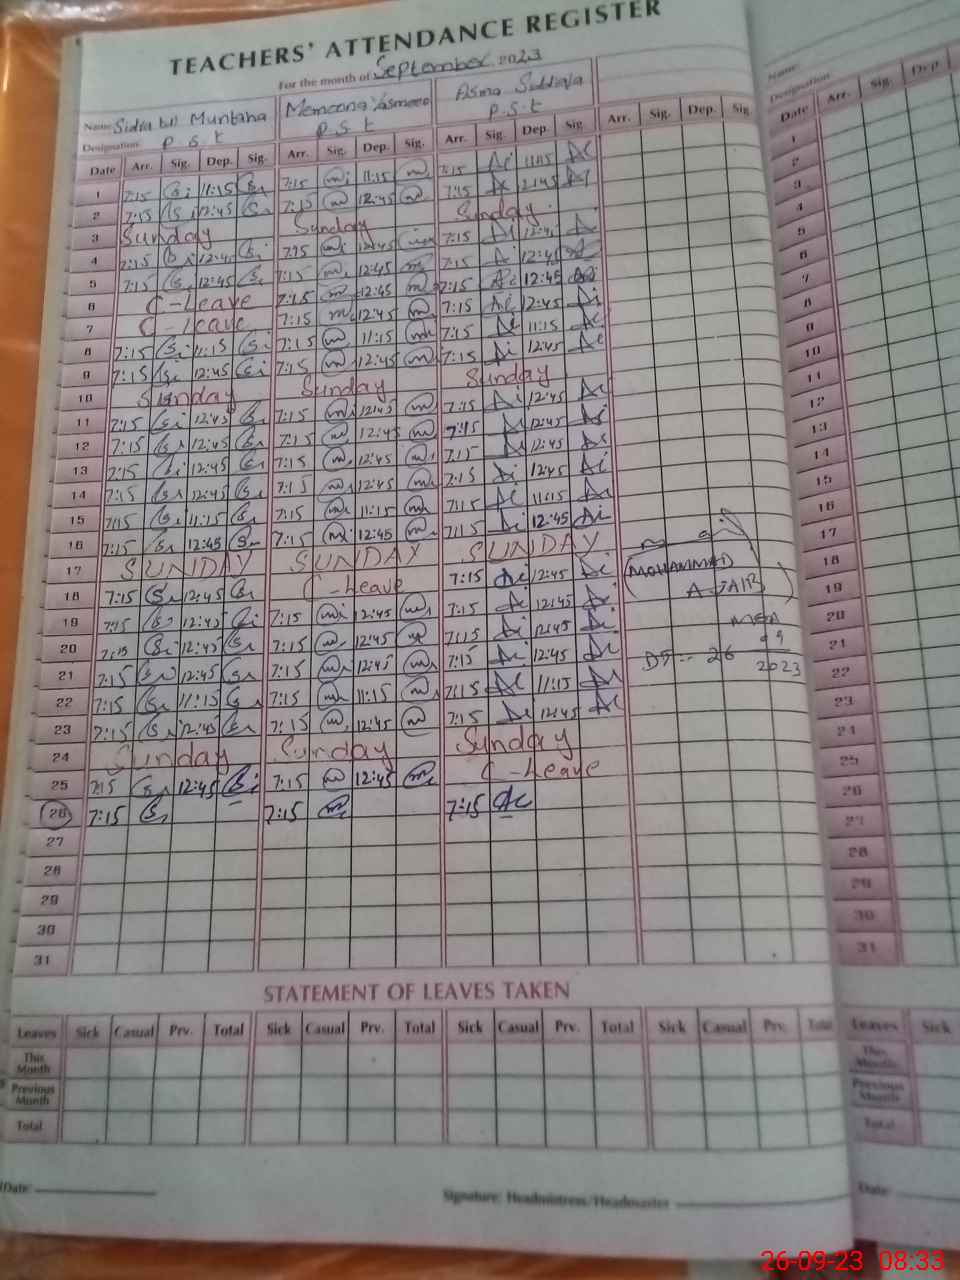 TEACHERS' ATTENDANCE REGISTER
For the month of September 2023
Name Sidra bil Muntaha Memoona Yasmeen Asma Siddiqa
Designation P.S.t P.S.t P.S.t
Date Arr. Sig. Dep. Sig. Arr. Sig. Dep. Sig. Arr. Sig. Dep. Sig. Arr. Sig. Dep. Sig
1 7:15 11:15 7:15 11:15 7:15 11:15
2 7:15 12:45 7:15 12:45 7:15
3 Sunday Sunday Sunday
4 7:15 12:45 7:15 12:45 7:15 12:45
5 7:15 12:45 7:15 12:45 7:15 12:45
6 C-Leave 7:15 12:45 7:15 12:45
7 C-Leave 7:15 12:45 7:15 12:45
8 7:15 11:15 7:15 11:15 7:15 11:15
9 7:15 12:45 7:15 12:45 7:15 12:45
10 Sunday Sunday Sunday
11 7:15 12:45 7:15 12:45 7:15 12:45
12 7:15 12:45 7:15 12:45 7:15 12:45
13 7:15 12:45 7:15 12:45 7:15 12:45
14 7:15 12:45 7:15 12:45 7:15 12:45
15 7:15 11:15 7:15 11:15 7:15 11:15
16 7:15 12:45 7:15 12:45 7:15 12:45
17 SUNDAY SUNDAY SUNDAY
18 7:15 12:45 C-Leave 7:15 12:45
19 7:15 12:45 7:15 12:45 7:15 12:45
20 7:15 12:45 7:15 12:45 7:15 12:45
21 7:15 12:45 7:15 12:45 7:15 12:45
22 7:15 11:15 7:15 11:15 7:15 11:15
23 7:15 12:45 7:15 12:45 7:15 12:45
24 Sunday Sunday Sunday
25 7:15 12:45 7:15 12:45 C-Leave
26 7:15 7:15 7:15
27
28
29
30
31
MOHAMMAD
AJAIB
MEA
DT:- 26 09
2023
STATEMENT OF LEAVES TAKEN
Leaves Sick Casual Prv. Total Sick Casual Prv. Total Sick Casual Prv. Total Sick Casual Prv. Total
This Month
Previous Month
Total
Date:
Signature: Headmistress/Headmaster
Name:
Designation:
Date Arr. Sig. Dep
1
2
3
4
5
6
7
8
9
10
11
12
13
14
15
16
17
18
19
20
21
22
23
24
25
26
27
28
29
30
31
Leaves Sick
This Month
Previous Month
Total
Date:
26-09-23 08:33